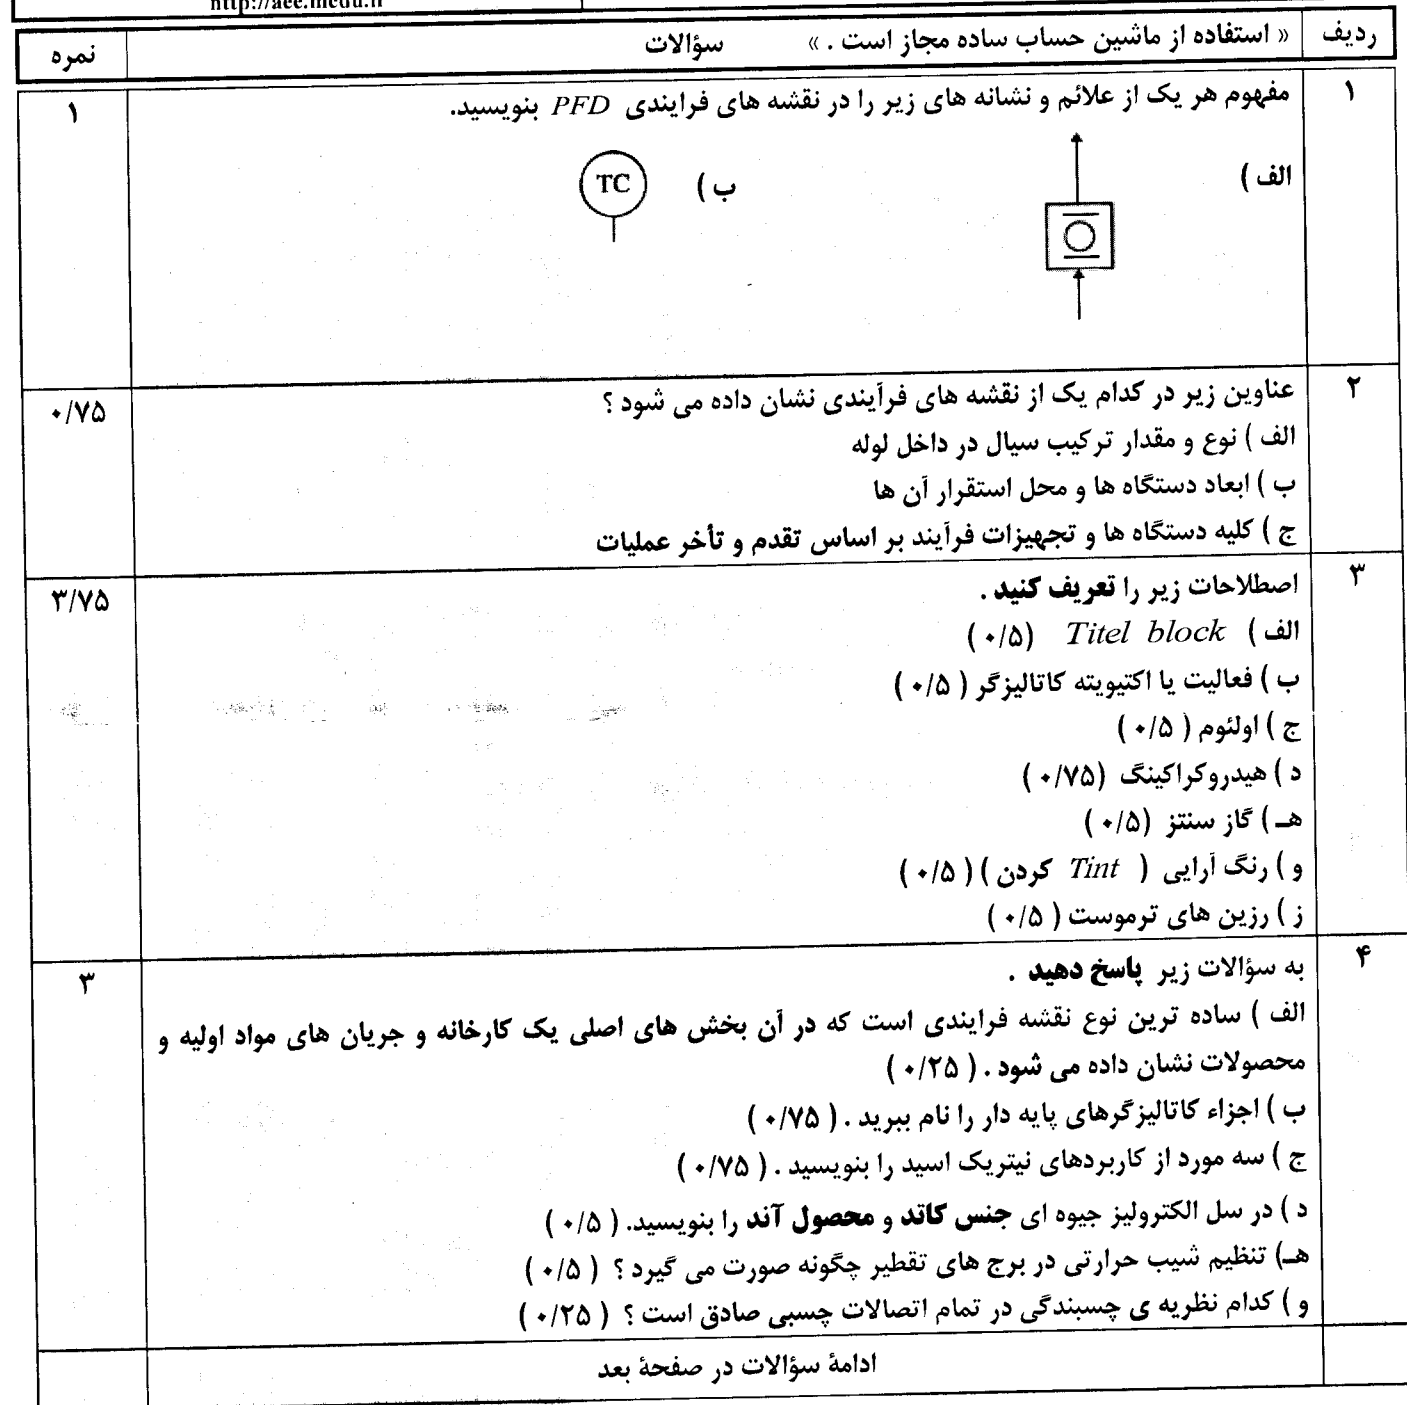 http://aee.medu.ir
ردیف « استفاده از ماشین حساب ساده مجاز است . » سؤالات نمره
۱ مفهوم هر یک از علائم و نشانه های زیر را در نقشه های فرایندی PFD بنویسید. ۱
الف ) ب ) TC
۲ عناوین زیر در کدام یک از نقشه های فرآیندی نشان داده می شود ؟ ۰/۷۵
الف ) نوع و مقدار ترکیب سیال در داخل لوله
ب ) ابعاد دستگاه ها و محل استقرار آن ها
ج ) کلیه دستگاه ها و تجهیزات فرآیند بر اساس تقدم و تأخر عملیات
۳ اصطلاحات زیر را تعریف کنید . ۳/۷۵
الف ) Titel block (۰/۵ )
ب ) فعالیت یا اکتیویته کاتالیزگر ( ۰/۵ )
ج ) اولئوم ( ۰/۵ )
د ) هیدروکراکینگ (۰/۷۵ )
هـ ) گاز سنتز (۰/۵ )
و ) رنگ آرایی ( Tint کردن ) ( ۰/۵ )
ز ) رزین های ترموست ( ۰/۵ )
۴ به سؤالات زیر پاسخ دهید . ۳
الف ) ساده ترین نوع نقشه فرایندی است که در آن بخش های اصلی یک کارخانه و جریان های مواد اولیه و
محصولات نشان داده می شود . ( ۰/۲۵ )
ب ) اجزاء کاتالیزگرهای پایه دار را نام ببرید . ( ۰/۷۵ )
ج ) سه مورد از کاربردهای نیتریک اسید را بنویسید . ( ۰/۷۵ )
د ) در سل الکترولیز جیوه ای جنس کاتد و محصول آند را بنویسید. ( ۰/۵ )
هـ) تنظیم شیب حرارتی در برج های تقطیر چگونه صورت می گیرد ؟ ( ۰/۵ )
و ) کدام نظریه ی چسبندگی در تمام اتصالات چسبی صادق است ؟ ( ۰/۲۵ )
ادامهٔ سؤالات در صفحهٔ بعد